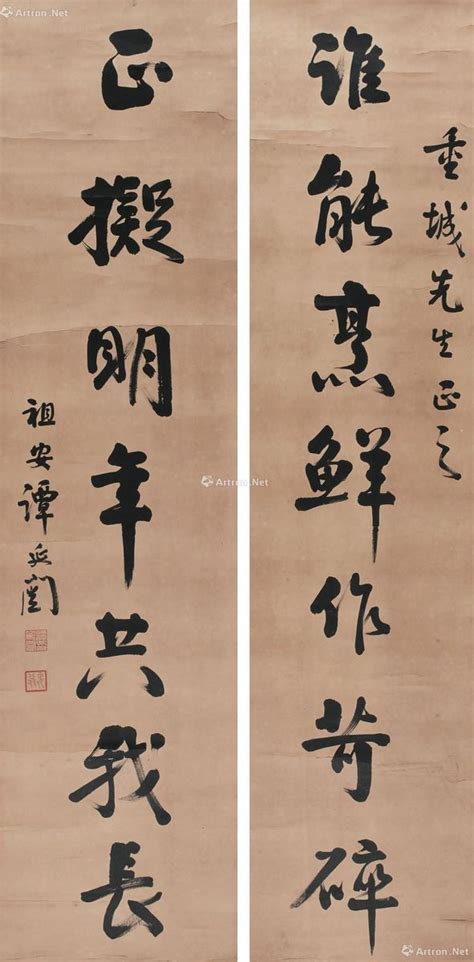 城先生正之
誰能烹鮮作苛碎
正擬明年共我長
祖安譚延闓
Artron.Net
Artron.Net
Artron.Net
Artron.Net